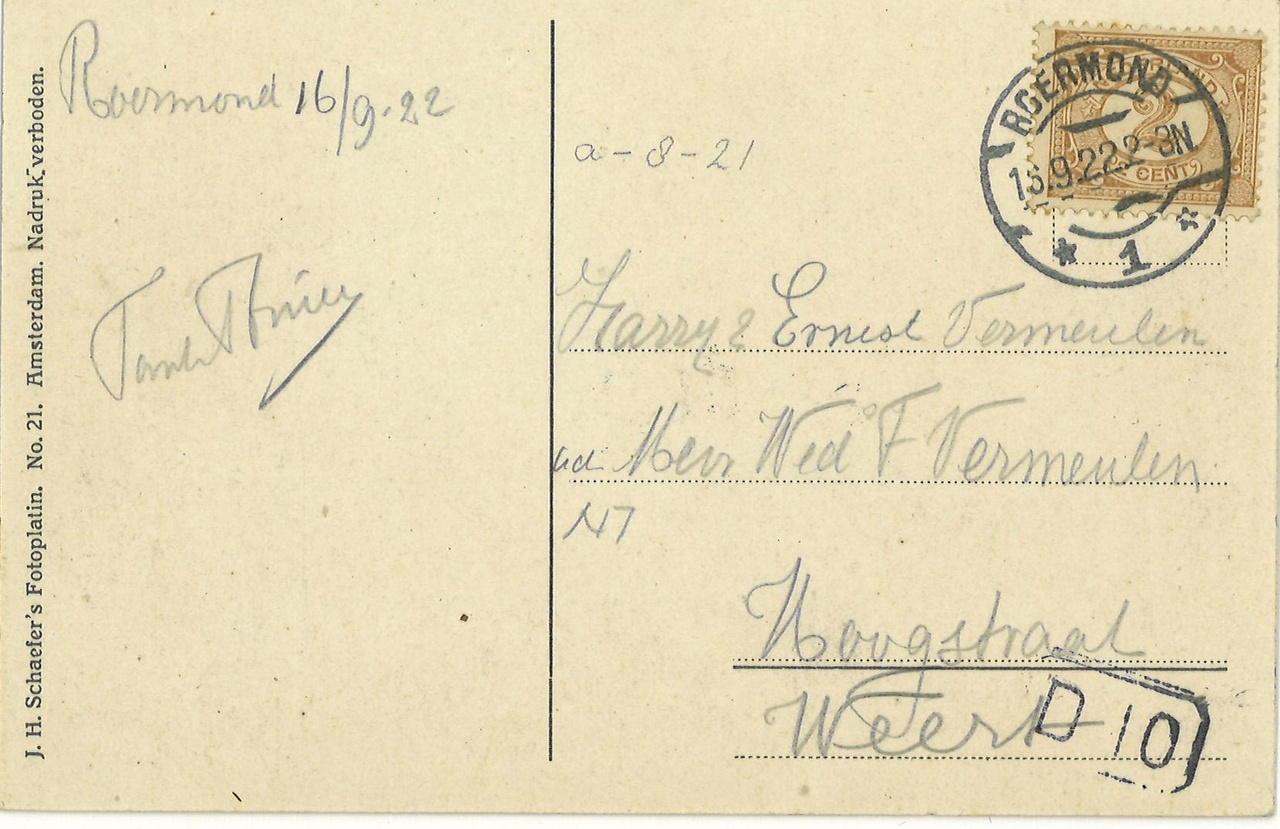 J. H. Schaefer's Fotoplatin. No. 21. Amsterdam. Nadruk verboden.
Roermond 16/9-22
Tante
a-8-21
ROERMOND 1
9.22 2-3N
2
CENT
Harry & Ernest Vermeulen
Wed F Vermeulen
Hoogstraat
Weert
D 10